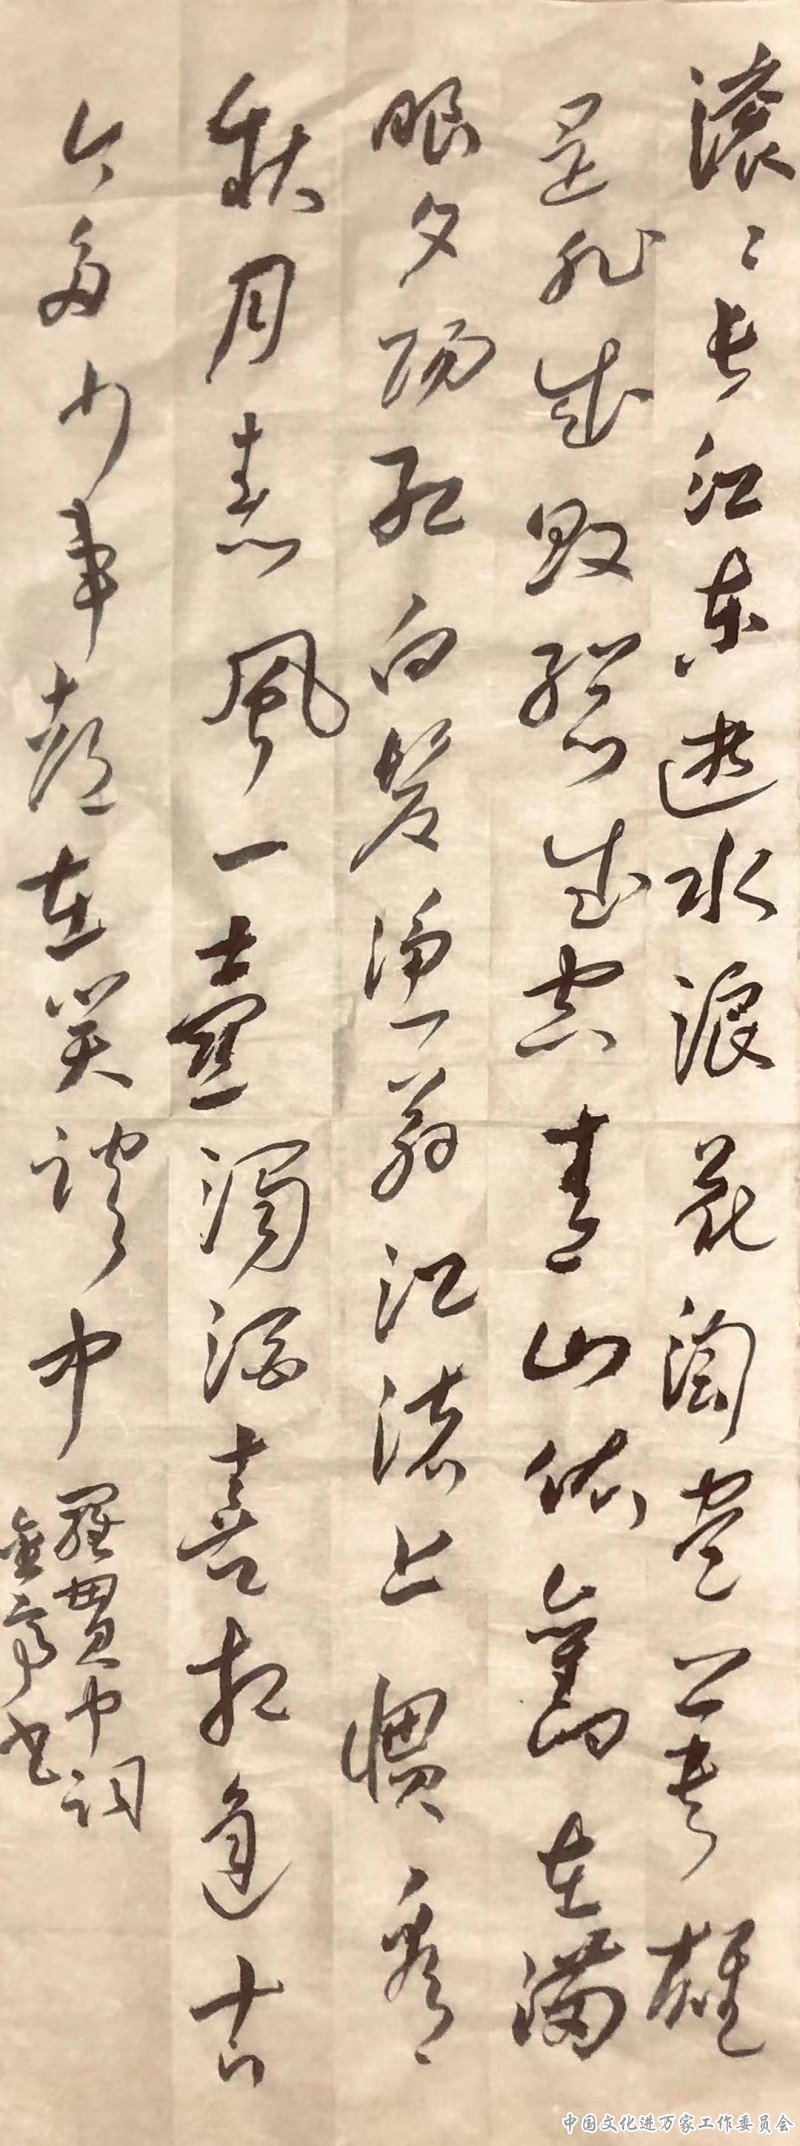 滚滚长江东逝水浪花淘尽英雄
是非成败總成空青山依舊在满
眼夕阳红白髮渔翁江渚上惯看
秋月春風一壶浊酒喜相逢古
今多少事都在笑谈中
羅贯中词
书
中国文化进万家工作委员会